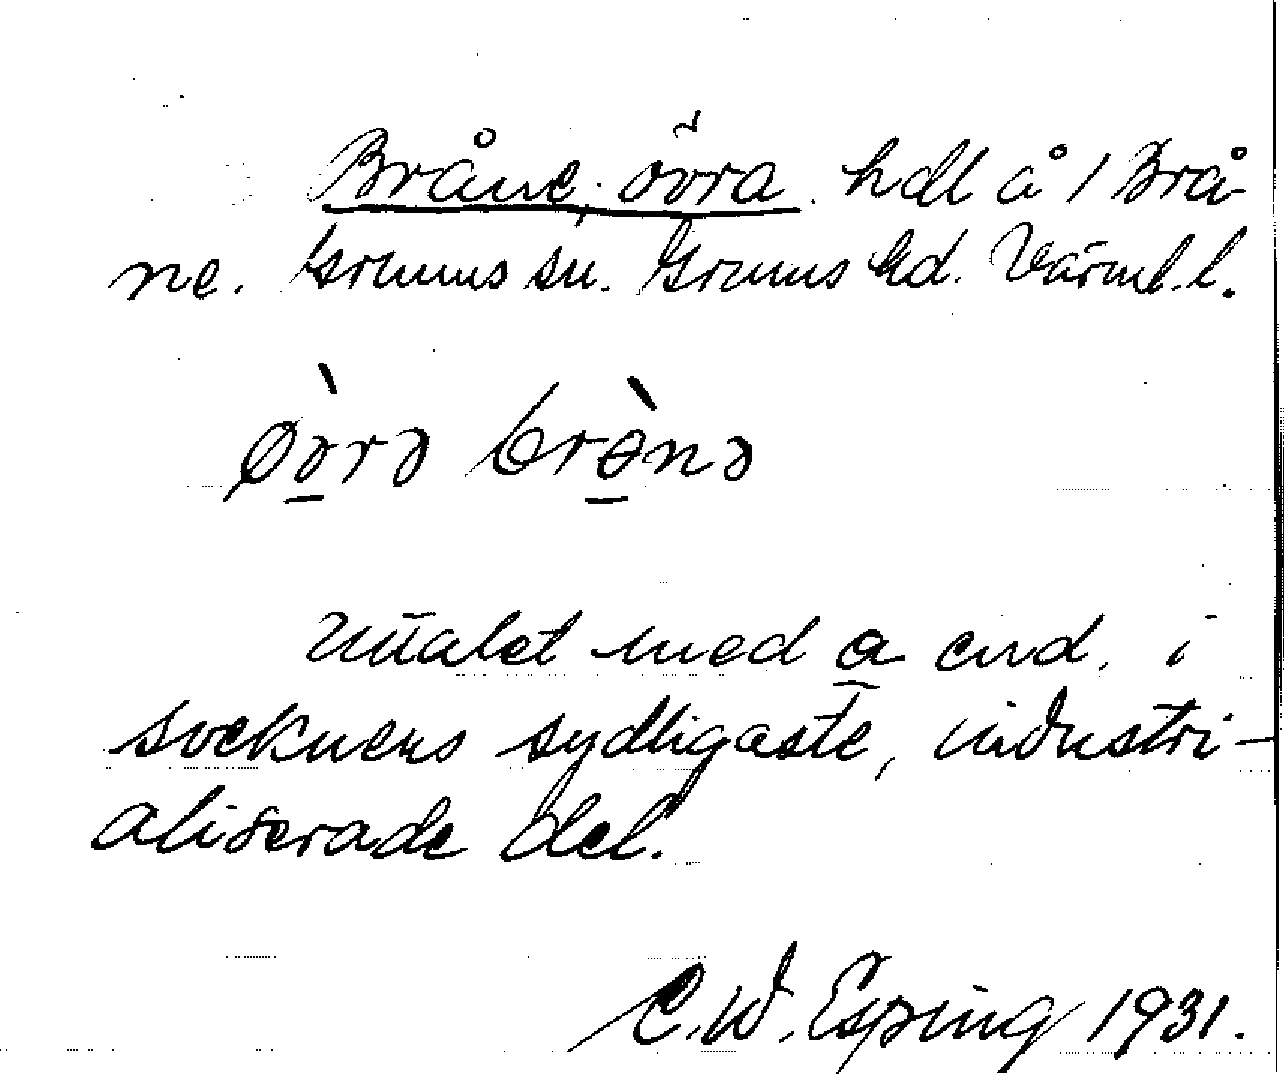 Bråne, övra. hdl å 1 Brå-
ne. Grums sn. Grums hd. Värml. l.
øvrə brånə
Uttalet med a end. i
socknens sydligaste, industri-
aliserade del.
C. W. Esping 1931.